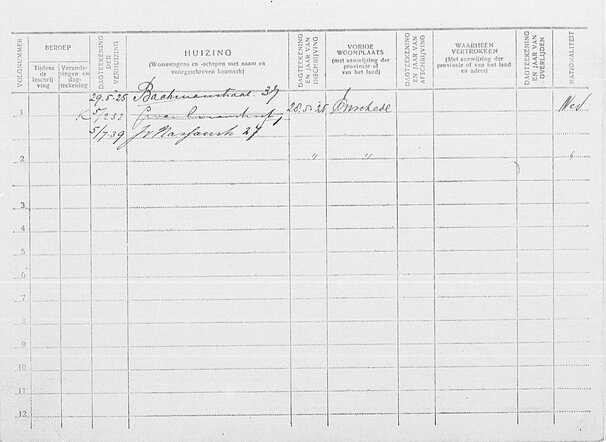 VOLGNUMMER
BEROEP
Tijdens de inschrijving
Veranderingen en dagteekening
DAGTEEKENING DER VERHUIZING
HUIZING
(Woonwagens en -schepen met naam en voorgeschreven kenmerk)
DAGTEEKENING EN JAAR VAN INSCHRIJVING
VORIGE WOONPLAATS
(Met aanwijzing der provincie of van het land)
DAGTEEKENING EN JAAR VAN AFSCHRIJVING
WAARHEEN VERTROKKEN
(Met aanwijzing der provincie of van het land en adres)
DAGTEEKENING EN JAAR VAN OVERLIJDEN
NATIONALITEIT
29.5.25 Bachmanstraat 37
1 28.5.25 Enschede Ned
5/7 39 27
2 " "
3
4
5
6
7
8
9
10
11
12